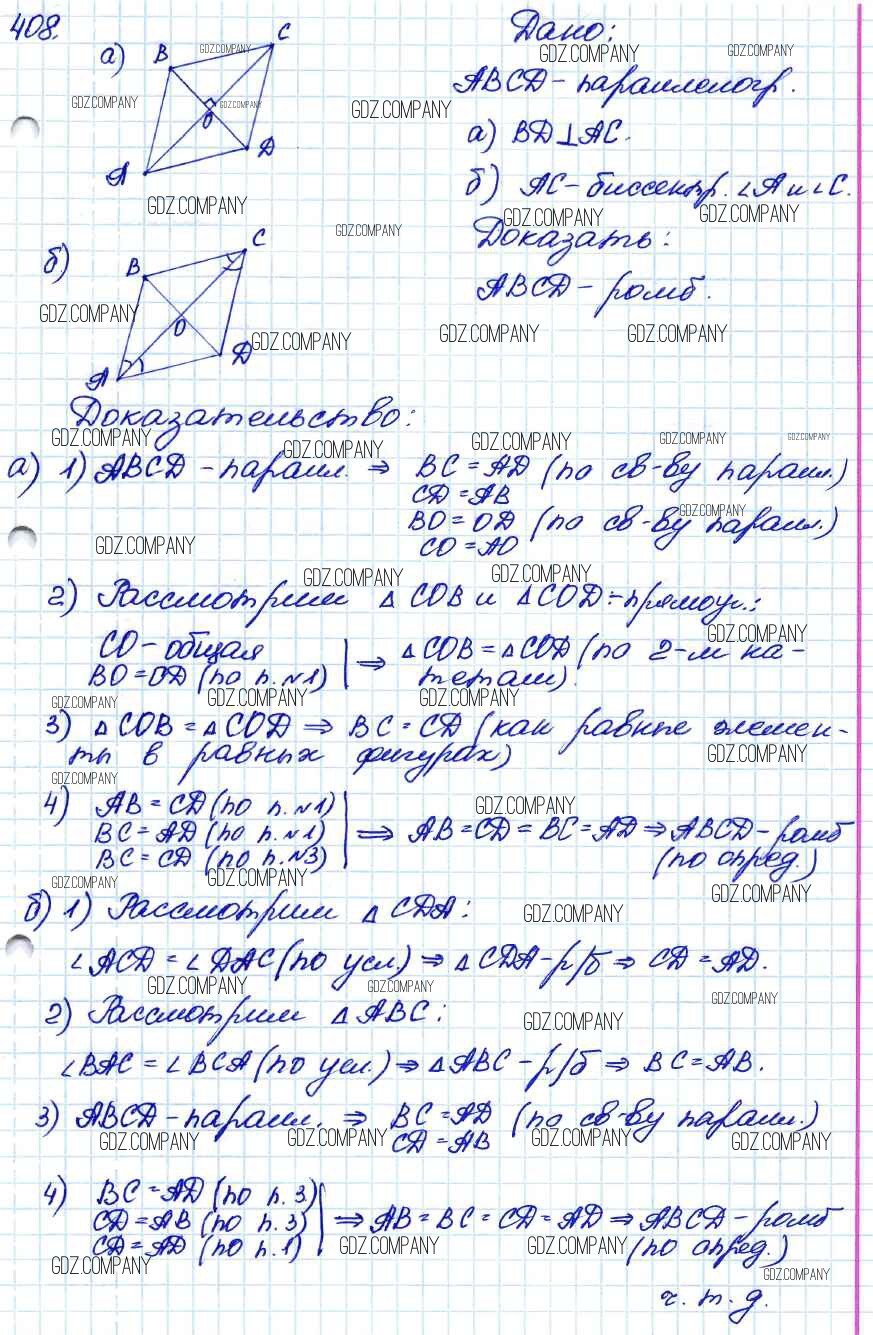 408.
а)
B
C
A
D
O
Дано:
ABCD – параллелогр.
а) BD⊥AC.
б) AC – биссектр. ∠A и ∠C.
Доказать:
ABCD – ромб.
б)
B
C
A
D
O
Доказательство:
а) 1) ABCD – паралл. ⇒ BC = AD (по св-ву паралл.)
CD = AB
BO = OD (по св-ву паралл.)
CO = AO
2) Рассмотрим △ COB и △ COD – прямоуг.:
CO – общая
BO = OD (по п. №1) ⇒ △ COB = △ COD (по 2-м ка-
тетам).
3) △ COB = △ COD ⇒ BC = CD (как равные элемен-
ты в равных фигурах)
4) AB = CD (по п. №1)
BC = AD (по п. №1) ⇒ AB = CD = BC = AD ⇒ ABCD – ромб
BC = CD (по п. №3) (по опред.)
б) 1) Рассмотрим △ CDA:
∠ACD = ∠DAC (по усл.) ⇒ △ CDA – р/б ⇒ CD = AD.
2) Рассмотрим △ ABC:
∠BAC = ∠BCA (по усл.) ⇒ △ ABC – р/б ⇒ BC = AB.
3) ABCD – паралл. ⇒ BC = AD (по св-ву паралл.)
CD = AB
4) BC = AD (по п. 3)
CD = AB (по п. 3) ⇒ AB = BC = CD = AD ⇒ ABCD – ромб
CD = AD (по п. 1) (по опред.)
ч. т. д.
GDZ.COMPANY